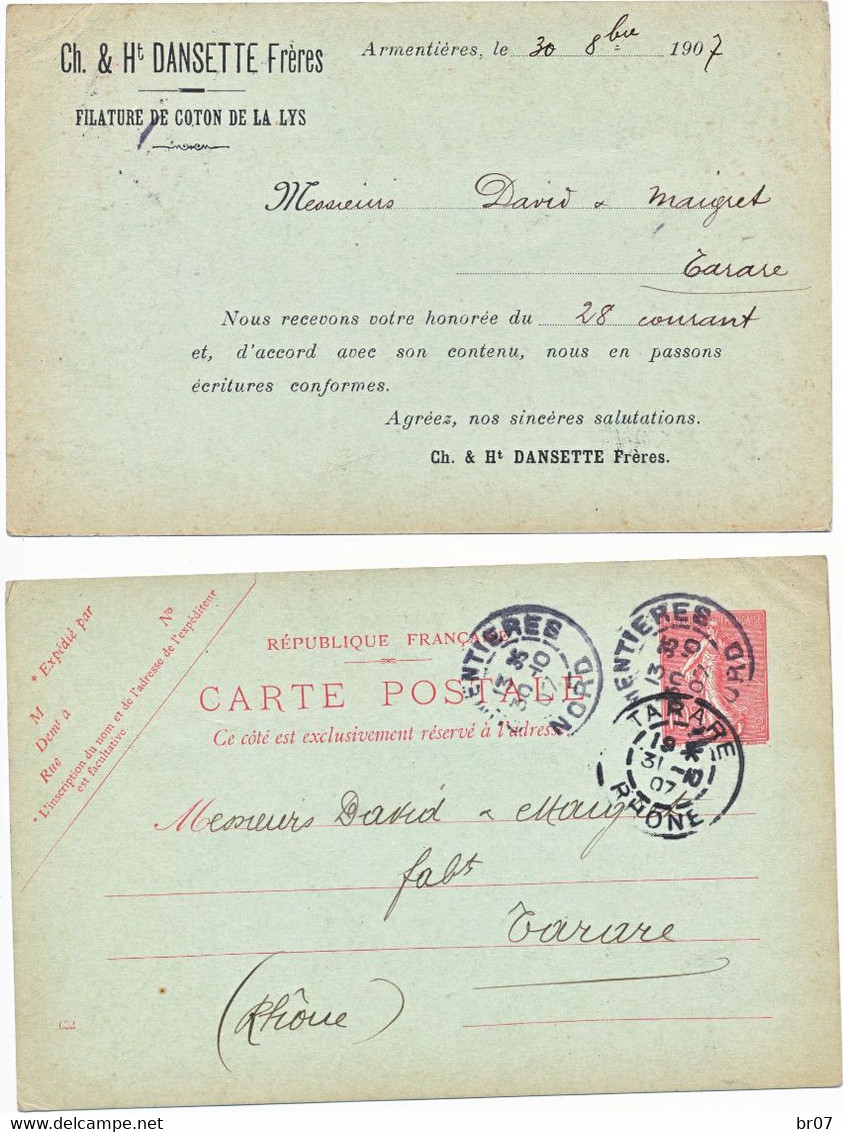 Ch. & Ht DANSETTE Frères
FILATURE DE COTON DE LA LYS
Armentières, le 30 8bre 1907
Messieurs David & Maigret
Tarare
Nous recevons votre honorée du 28 courant
et, d'accord avec son contenu, nous en passons
écritures conformes.
Agréez, nos sincères salutations.
Ch. & Ht DANSETTE Frères.
* Expédié par
M
Demt à
Rue
No
* L'inscription du nom et de l'adresse de l'expéditeur
est facultative.
RÉPUBLIQUE FRANÇAISE
CARTE POSTALE
Ce côté est exclusivement réservé à l'adresse.
MENTIERES
13 35
30 -10
07
NORD
MENTIERES
13 35
07
ORD
TARARE
19 *
31 -10
07
RHONE
Messieurs David & Maigret
fabts
Tarare
(Rhône)
br07